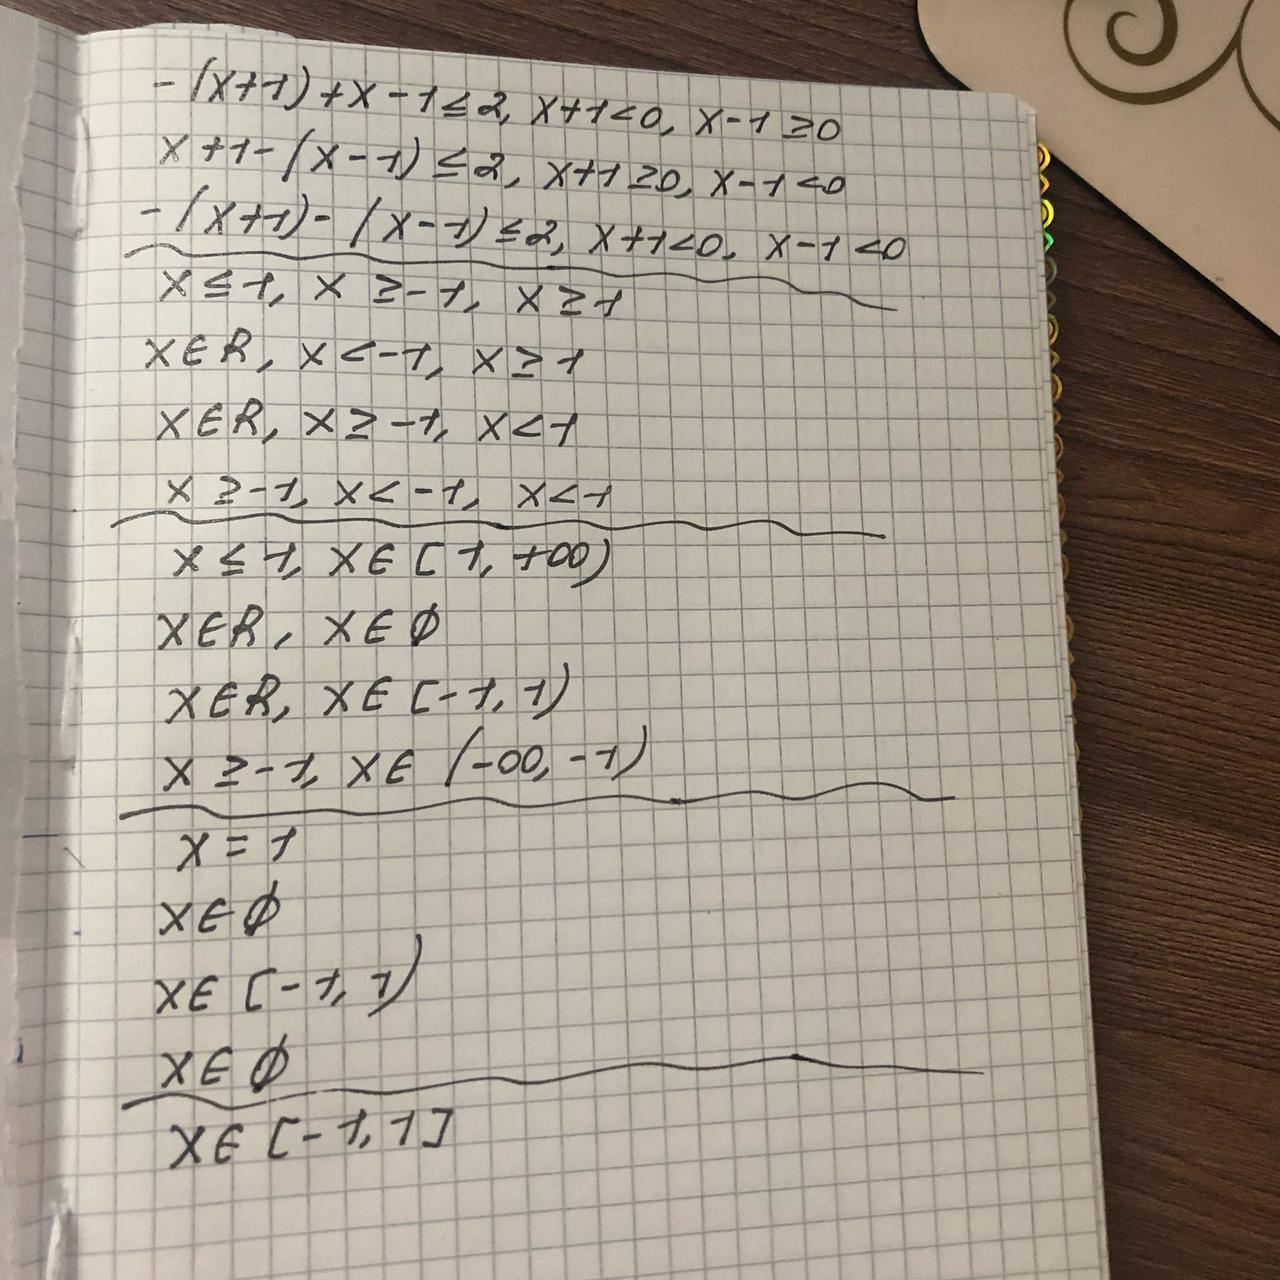 -(x+1)+x-1≤2, x+1<0, x-1≥0
x+1-(x-1)≤2, x+1≥0, x-1<0
-(x+1)-(x-1)≤2, x+1<0, x-1<0
x≤1, x≥-1, x≥1
x∈R, x<-1, x≥1
x∈R, x≥-1, x<1
x≥-1, x<-1, x<1
x≤1, x∈[1, +∞)
x∈R, x∈∅
x∈R, x∈[-1, 1)
x≥-1, x∈(-∞, -1)
x=1
x∈∅
x∈[-1, 1)
x∈∅
x∈[-1, 1]